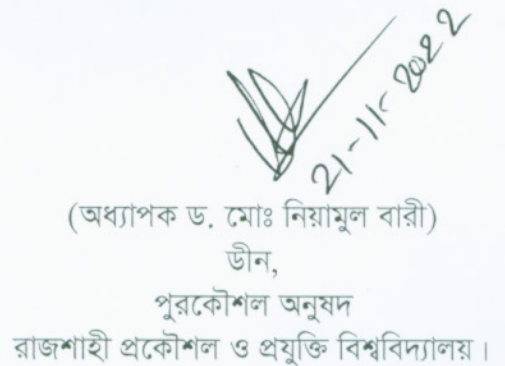 21-11-2022
(অধ্যাপক ড. মোঃ নিয়ামুল বারী)
ডীন,
পুরকৌশল অনুষদ
রাজশাহী প্রকৌশল ও প্রযুক্তি বিশ্ববিদ্যালয়।